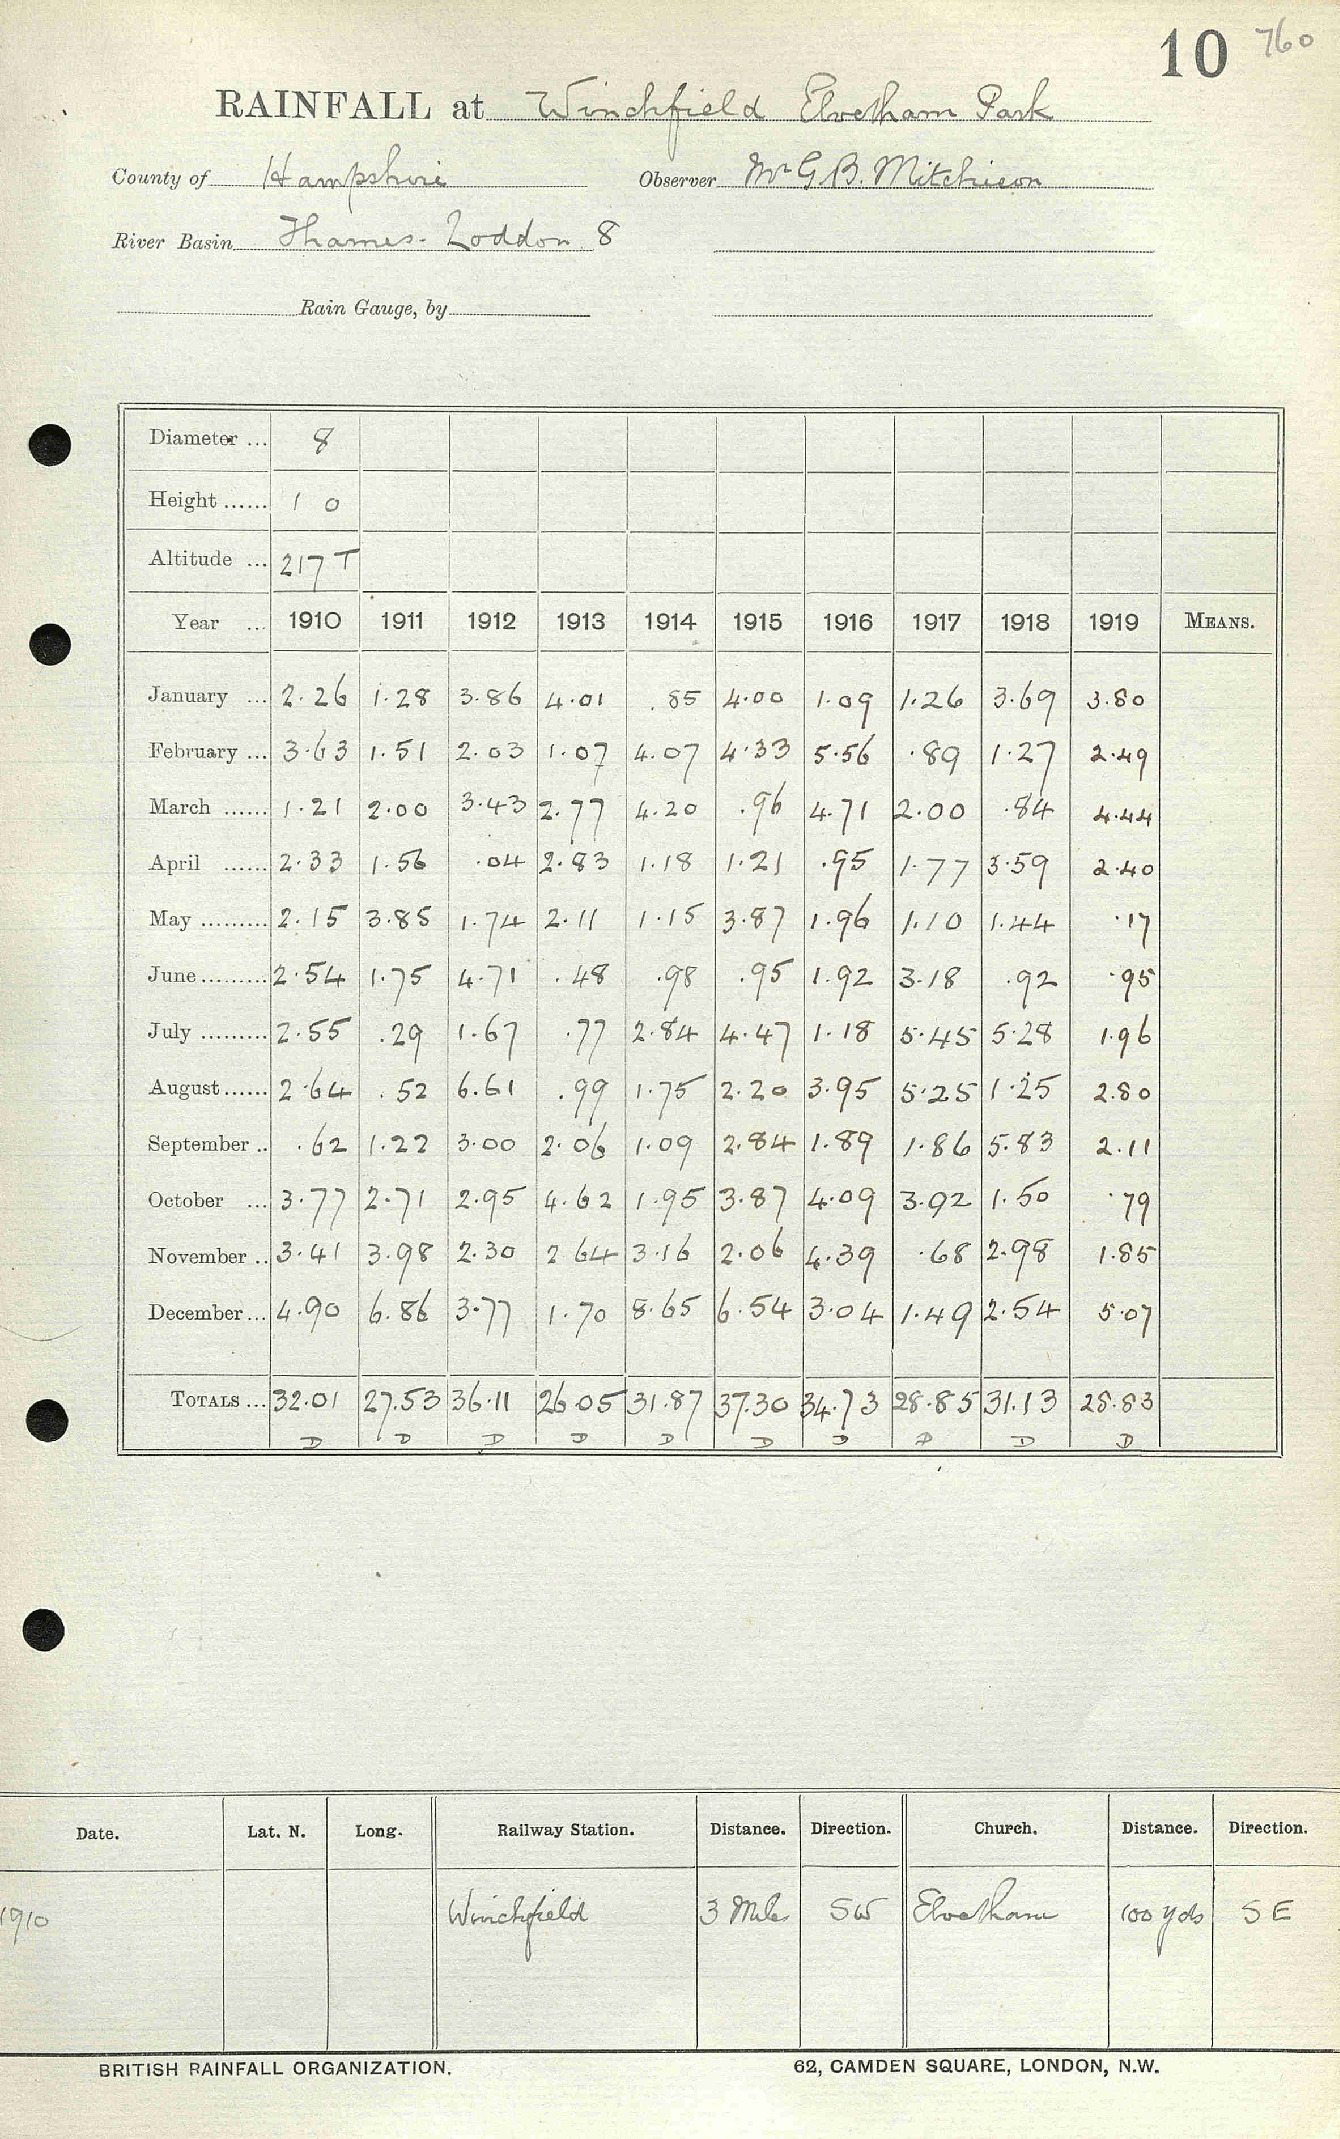 10 760
RAINFALL at Winchfield Elvetham Park
County of Hampshire Observer Mr G.B. Mitchison
River Basin Thames - Loddon 8
Rain Gauge, by
Diameter ... 8
Height ...... 1 0
Altitude ... 217 T
Year ... 1910 1911 1912 1913 1914 1915 1916 1917 1918 1919 MEANS.
January ... 2.26 1.28 3.86 4.01 .85 4.00 1.09 1.26 3.69 3.80
February ... 3.63 1.51 2.03 1.07 4.07 4.33 5.56 .89 1.27 2.49
March ...... 1.21 2.00 3.43 2.77 4.20 .96 4.71 2.00 .84 4.44
April ...... 2.33 1.56 .04 2.83 1.18 1.21 .95 1.77 3.59 2.40
May ......... 2.15 3.85 1.74 2.11 1.15 3.87 1.96 1.10 1.44 .17
June ......... 2.54 1.75 4.71 .48 .98 .95 1.92 3.18 .92 .95
July ......... 2.55 .29 1.67 .77 2.84 4.47 1.18 5.45 5.28 1.96
August ...... 2.64 .52 6.61 .99 1.75 2.20 3.95 5.25 1.25 2.80
September .. .62 1.22 3.00 2.06 1.09 2.84 1.89 1.86 5.83 2.11
October ... 3.77 2.71 2.95 4.62 1.95 3.87 4.09 3.92 1.50 .79
November .. 3.41 3.98 2.30 2 64 3.16 2.06 4.39 .68 2.98 1.85
December ... 4.90 6.86 3.77 1.70 8.65 6.54 3.04 1.49 2.54 5.07
TOTALS ... 32.01 27.53 36.11 26.05 31.87 37.30 34.73 28.85 31.13 28.83
D D D D D D D D D D
Date. Lat. N. Long. Railway Station. Distance. Direction. Church. Distance. Direction.
1910 Winchfield 3 Miles SW Elvetham 100 yds SE
BRITISH RAINFALL ORGANIZATION. 62, CAMDEN SQUARE, LONDON, N.W.